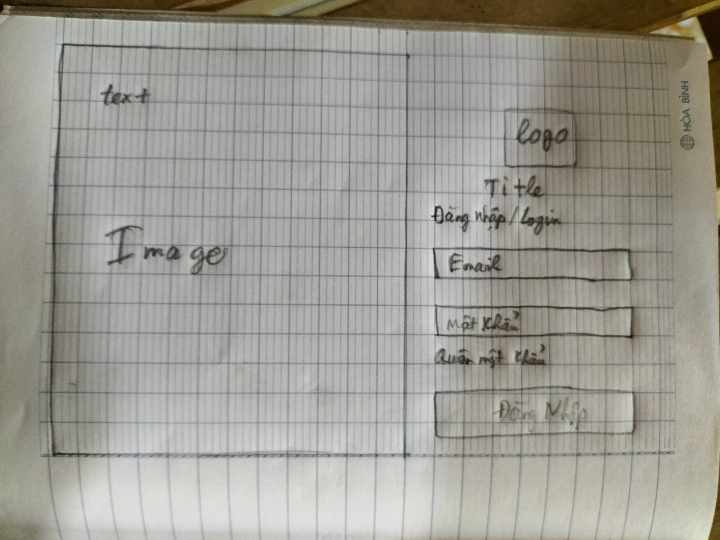 text
Image
logo
Title
Đăng nhập/Login
Email
Mật khẩu
Quên mật khẩu
Đăng Nhập
HÒA BÌNH